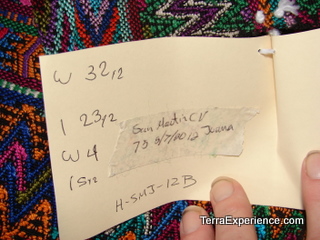 W 32 1/2
1 23 1/2
San Martin CV
75 5/7/00 12 Juana
W 4
H-SMJ-12B
TerraExperience.com